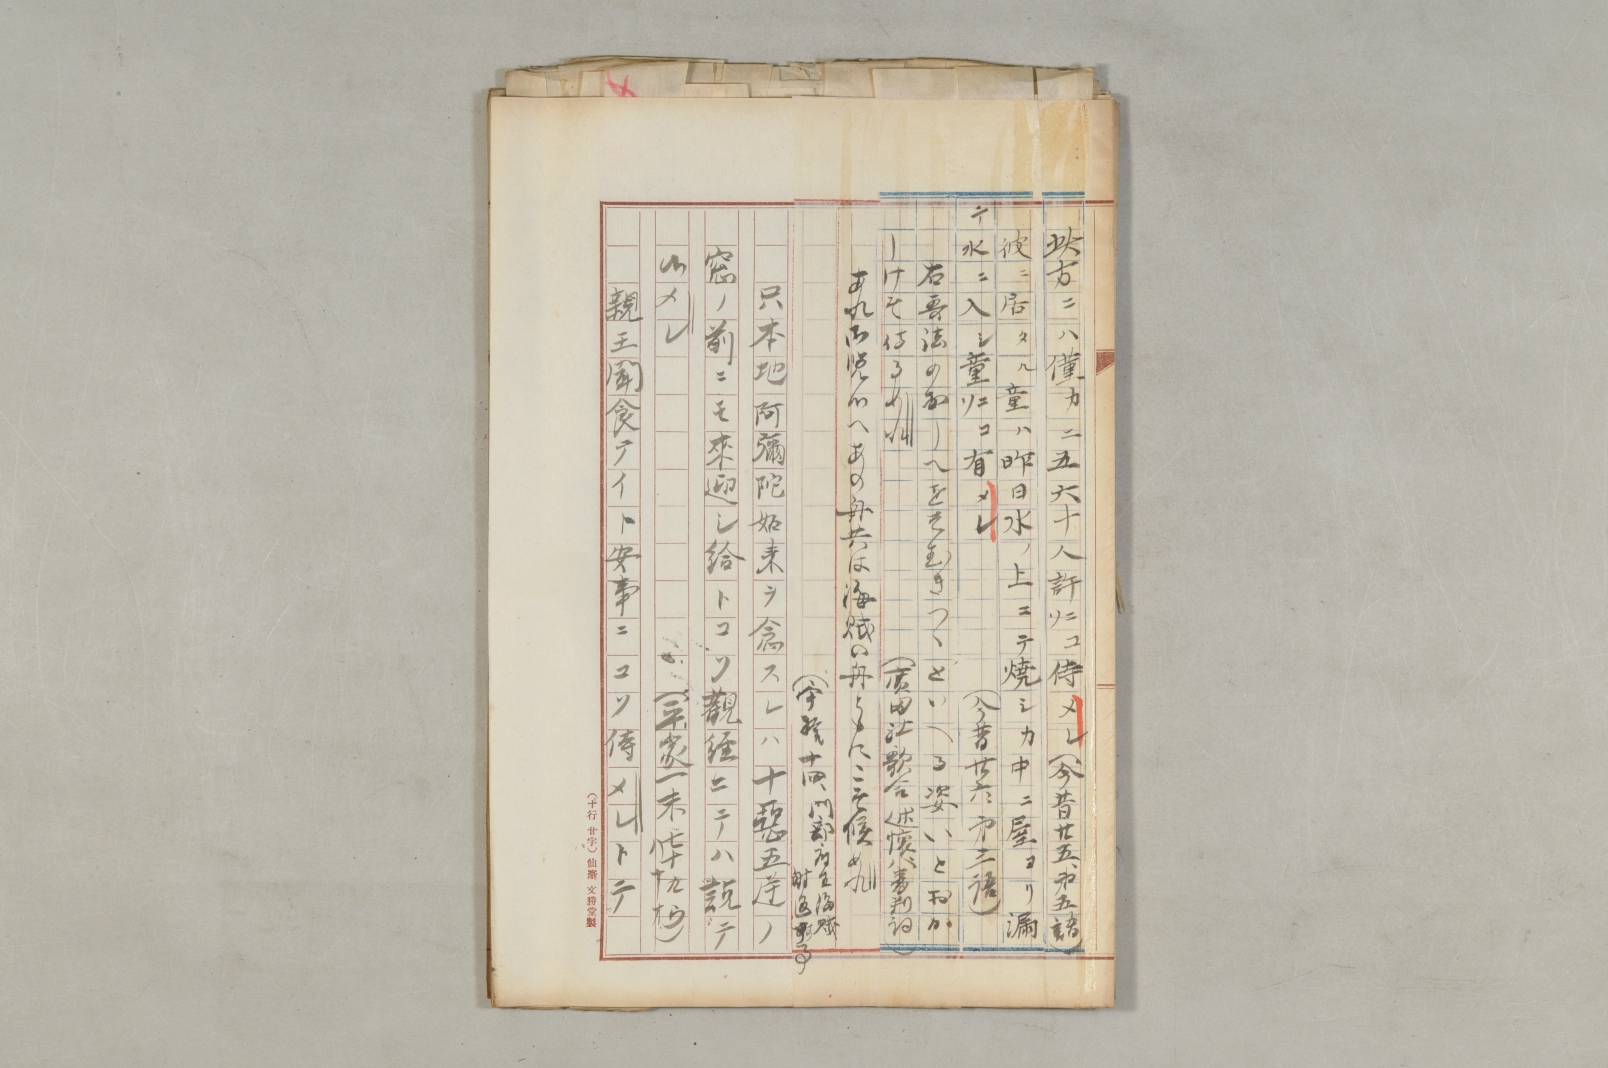 此方ニハ僅カニ五六十人許リニコ侍メレ(今昔廿五、第五語)
彼ニ居タル童ハ昨日水ノ上ニテ焼シカ中ニ屋ヨリ漏
テ水ニ入シ童ニコ有メレ
(今昔廿六、第三語)
右哥法のおしへをそむきつゝといへる姿いとおか
しけそ侍るめれ
(廣田社歌合述懐八番判詞)
あれ御覧候へあの舟共は海賊の舟ともにこそ候めれ
(宇拾十四、門部府生海賊
射返す事)
只本地阿彌陀如来ヲ念スレハ十惡五逆ノ
窓ノ前ニモ來迎シ給トコソ觀經ニテハ説テ
候メレ
親王聞食テイト安事ニコソ侍メレトテ
(十行 廿字) 仙臺 文勝堂製